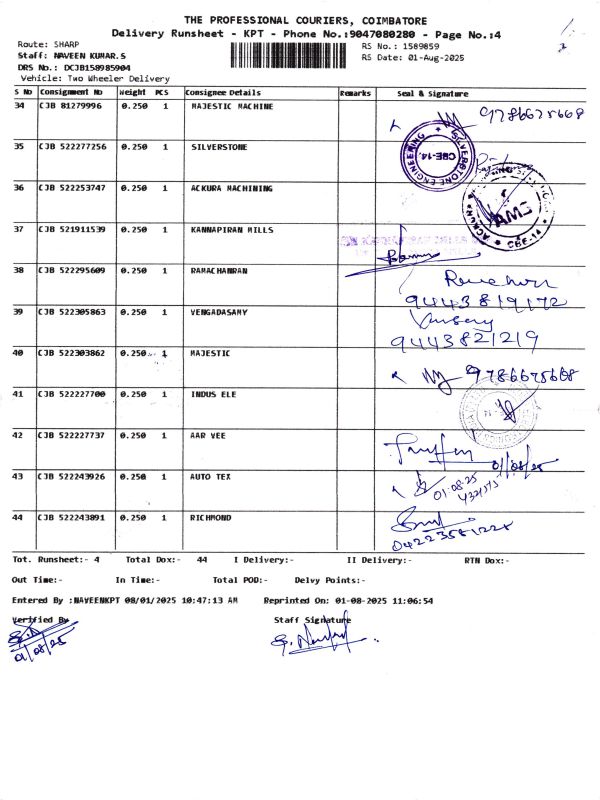 THE PROFESSIONAL COURIERS, COIMBATORE
Delivery Runsheet - KPT - Phone No.:9047080280 - Page No.:4
Route: SHARP
RS No.: 1589859
Staff: NAVEEN KUMAR.S
RS Date: 01-Aug-2025
DRS No.: DCJB158985904
Vehicle: Two Wheeler Delivery
S No Consignment No Weight PCS Consignee Details Remarks Seal & Signature
34 CJB 81279996 0.250 1 MAJESTIC MACHINE 9786675668
35 CJB 522277256 0.250 1 SILVERSTONE
SILVERSTONE ENGINEERING CBE-14.
36 CJB 522253747 0.250 1 ACKURA MACHINING
AMS CBE-14
37 CJB 521911539 0.250 1 KANNAPIRAN MILLS
38 CJB 522295609 0.250 1 RAMACHANRAN
9443819172
39 CJB 522305863 0.250 1 VENGADASAMY
9443821219
40 CJB 522303862 0.250 1 MAJESTIC 9786675668
41 CJB 522227700 0.250 1 INDUS ELE
42 CJB 522227737 0.250 1 AAR VEE
01/08/25
43 CJB 522243926 0.250 1 AUTO TEX
01.08.25
44 CJB 522243891 0.250 1 RICHMOND
04223581228
Tot. Runsheet:- 4 Total Dox:- 44 I Delivery:- II Delivery:- RTN Dox:-
Out Time:- In Time:- Total POD:- Delvy Points:-
Entered By :NAVEENKPT 08/01/2025 10:47:13 AM Reprinted On: 01-08-2025 11:06:54
Verified By Staff Signature
01/08/25